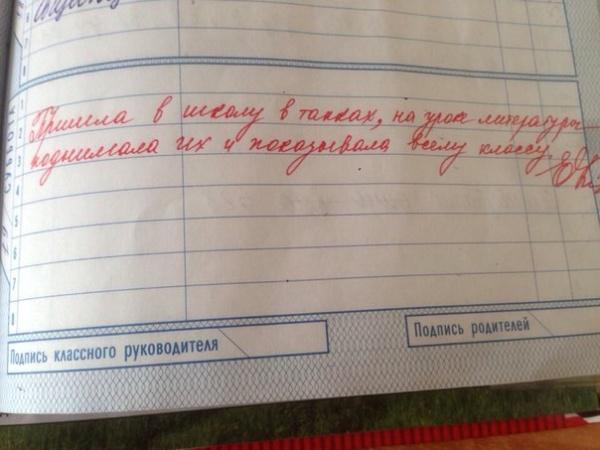 Пришла в школу в тапках, на уроке литературы
поднимала их и показывала всему классу.
СУББОТА
1
2
3
4
5
6
7
8
Подпись классного руководителя
Подпись родителей